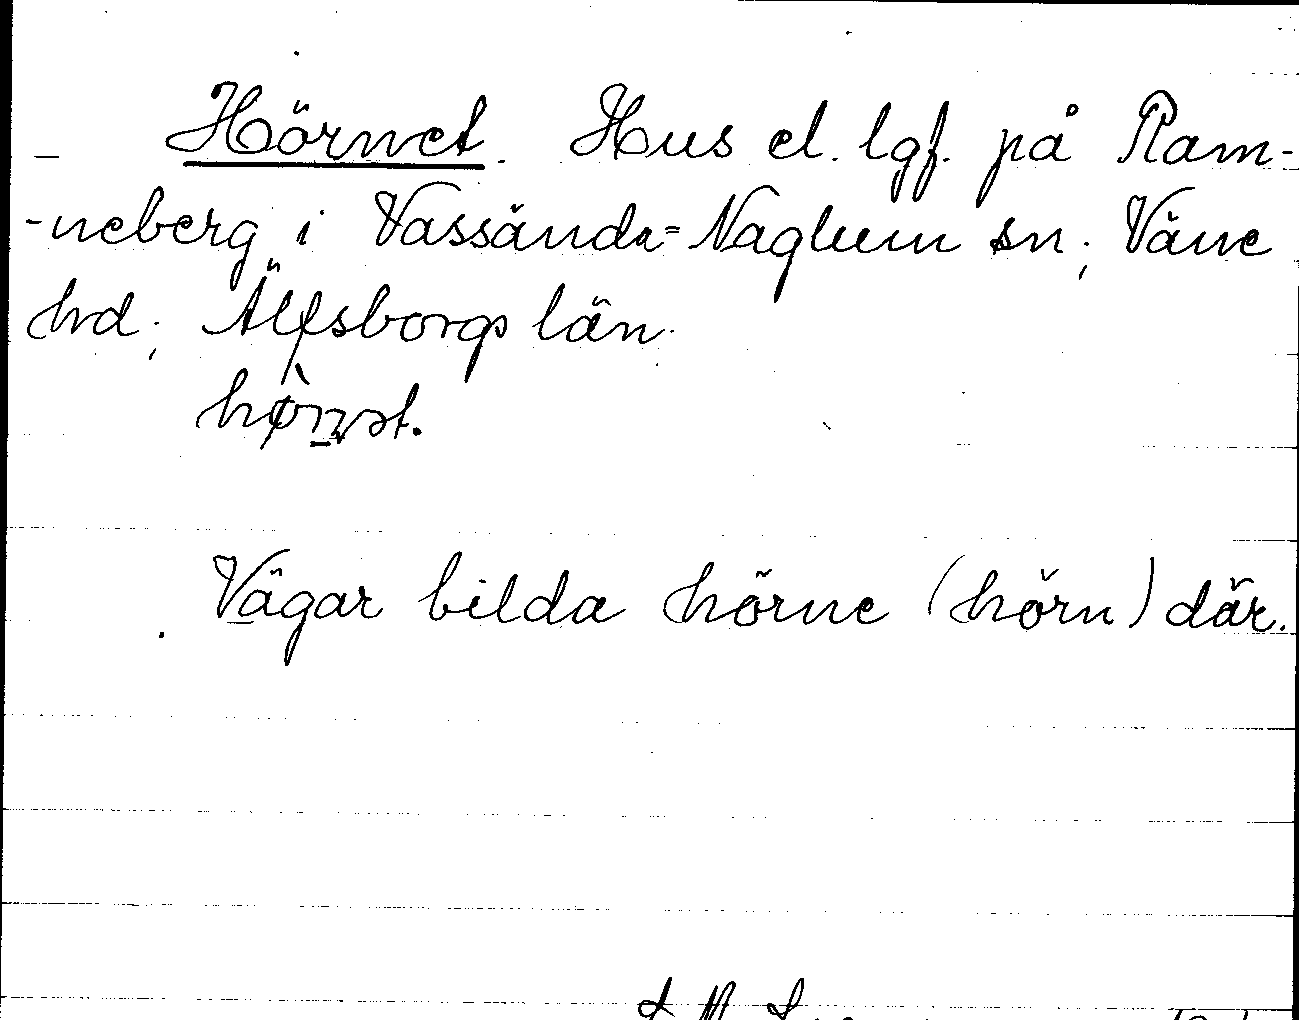 Hörnet. Hus el. lgf. på Ram-
-neberg i Vassända=Naglum sn; Väne
hrd; Älfsborgs län.
Vägar bilda hörne (hörn) där.